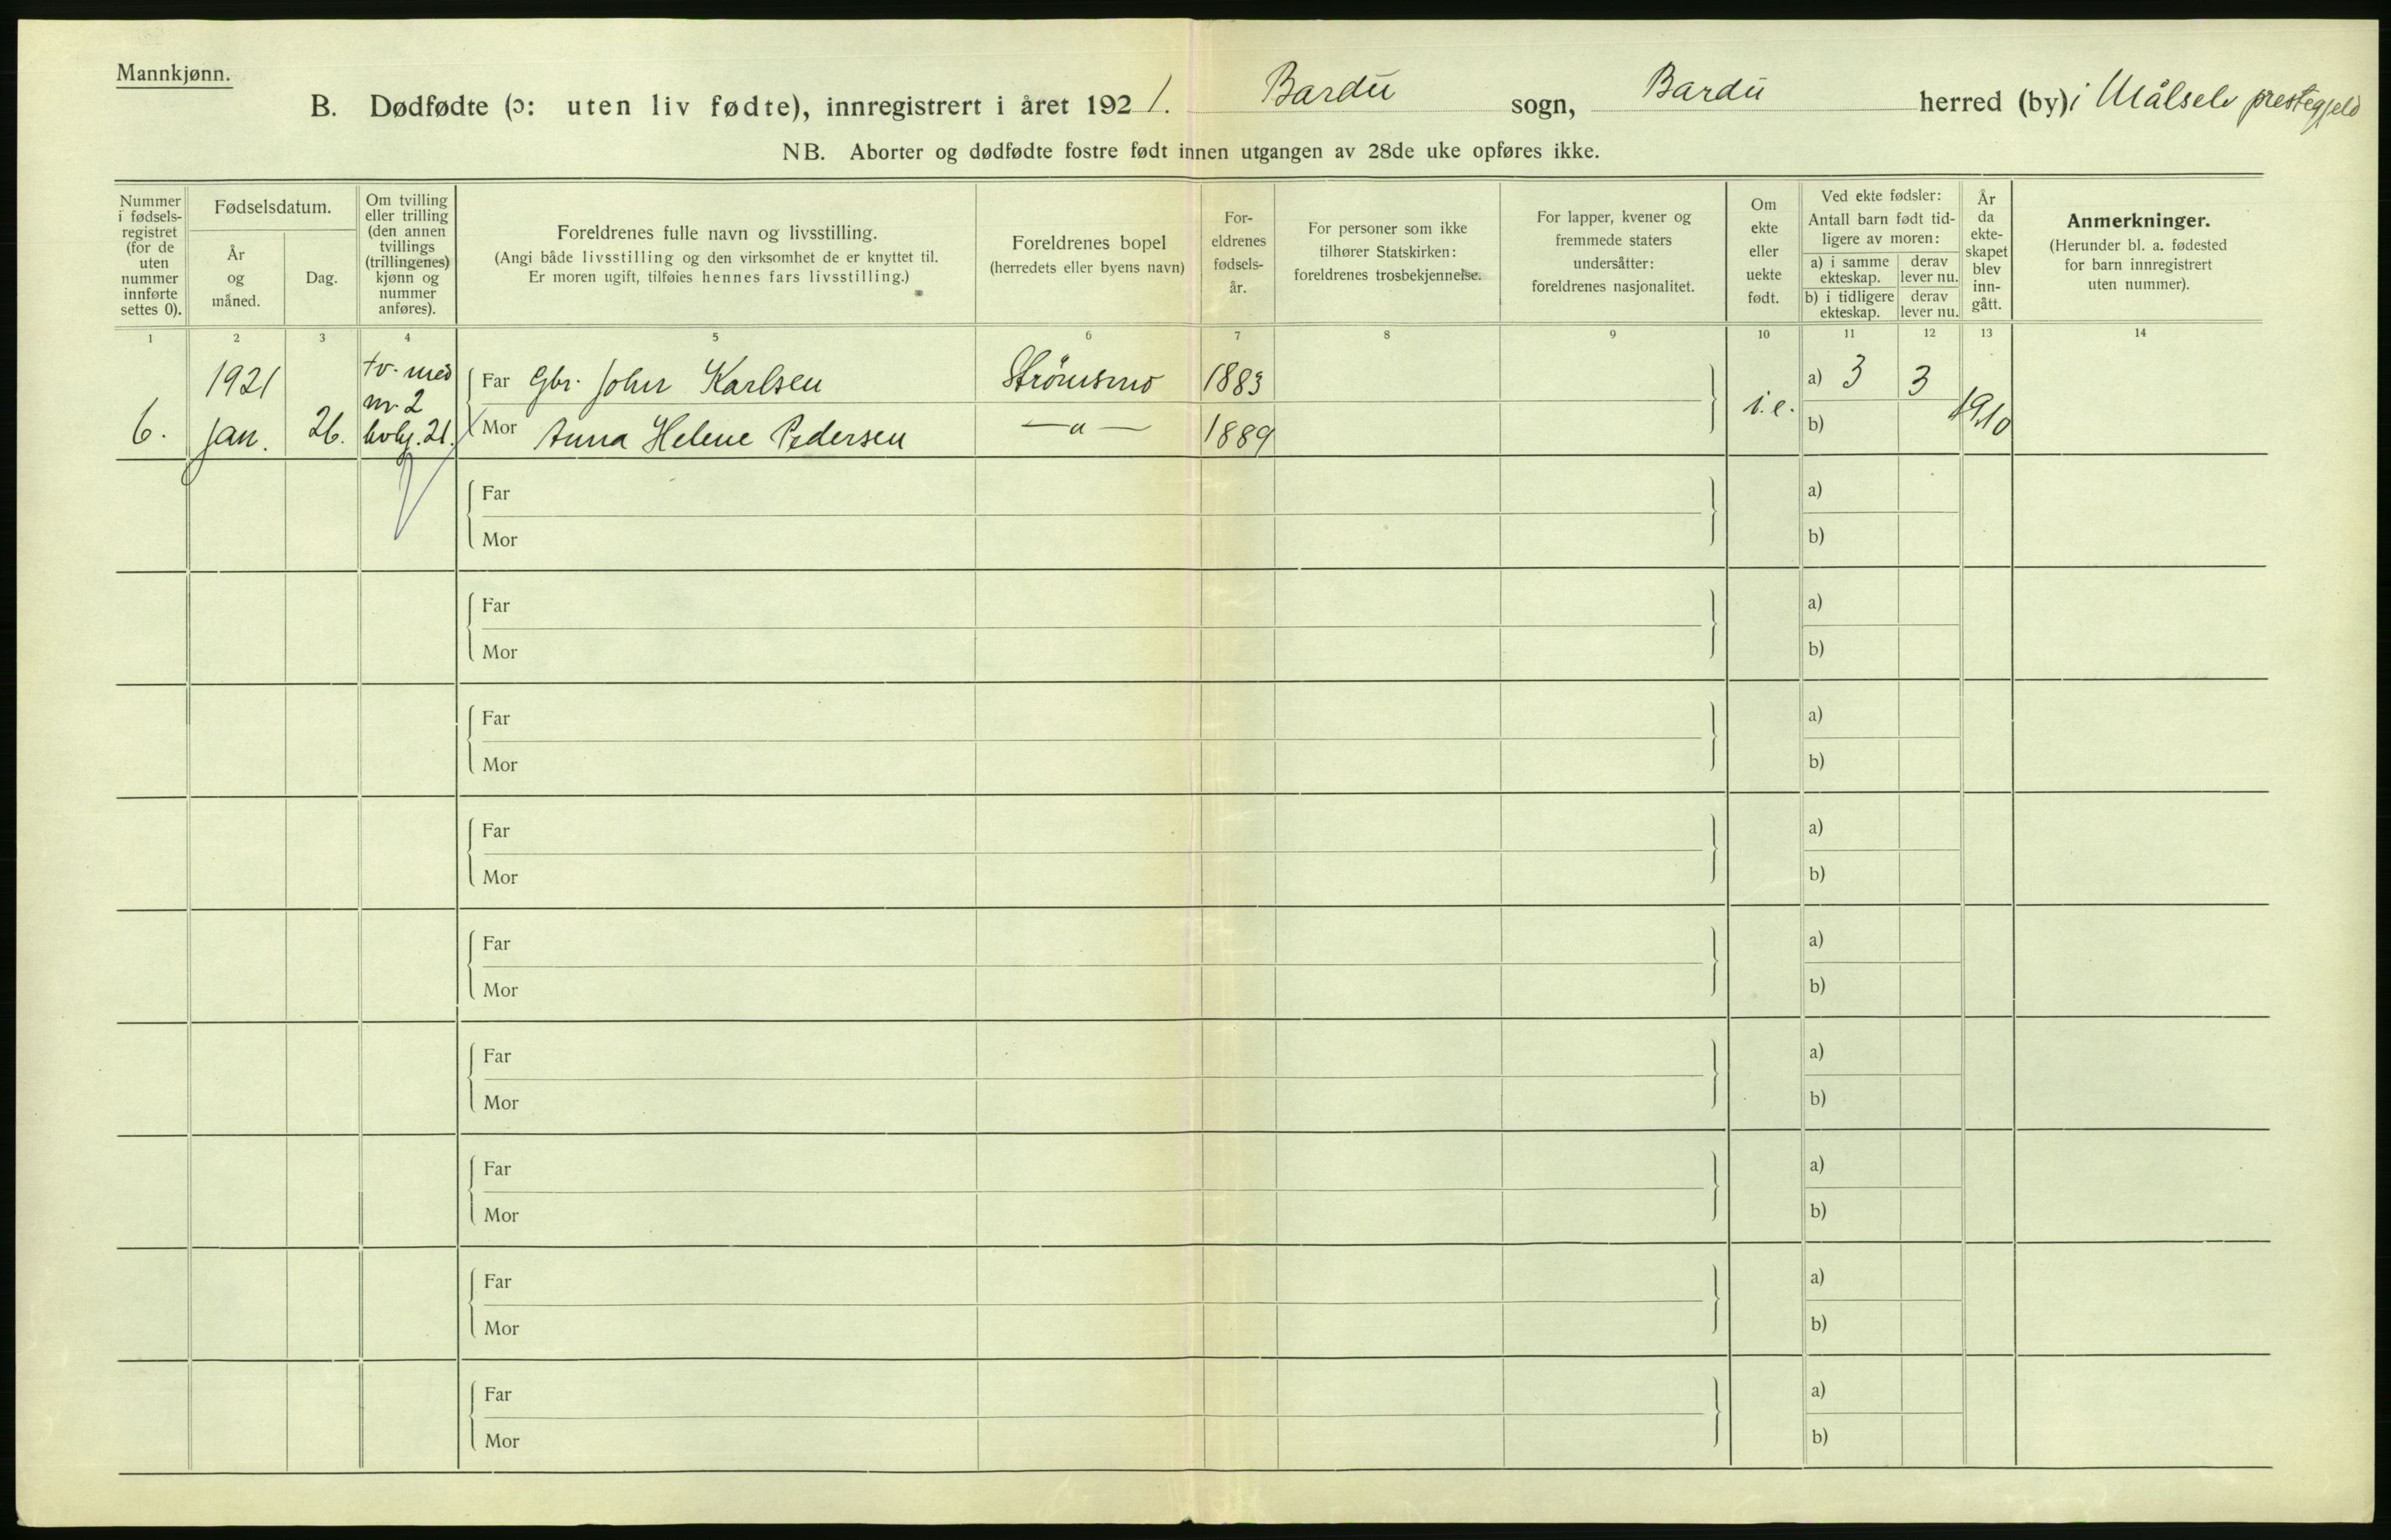 Mannkjønn.
B. Dødfødte (ɔ: uten liv fødte), innregistrert i året 1921. Bardu sogn, Bardu herred (by) i Målselv prestegjeld
NB. Aborter og dødfødte fostre født innen utgangen av 28de uke opføres ikke.
Nummer
i fødsels-
registret
(for de
uten
nummer
innførte
settes 0).
Fødselsdatum.
År
og
måned.
Dag.
Om tvilling
eller trilling
(den annen
tvillings
(trillingenes)
kjønn og
nummer
anføres).
Foreldrenes fulle navn og livsstilling.
(Angi både livsstilling og den virksomhet de er knyttet til.
Er moren ugift, tilføies hennes fars livsstilling.)
Foreldrenes bopel
(herredets eller byens navn)
For-
eldrenes
fødsels-
år.
For personer som ikke
tilhører Statskirken:
foreldrenes trosbekjennelse.
For lapper, kvener og
fremmede staters
undersåtter:
foreldrenes nasjonalitet.
Om
ekte
eller
uekte
født.
Ved ekte fødsler:
Antall barn født tid-
ligere av moren:
a) i samme
ekteskap.
derav
lever nu.
b) i tidligere
ekteskap.
derav
lever nu.
År
da
ekte-
skapet
blev
inn-
gått.
Anmerkninger.
(Herunder bl. a. fødested
for barn innregistrert
uten nummer).
1 2 3 4 5 6 7 8 9 10 11 12 13 14
6.
1921
jan.
26.
tv. med
nr. 2
Far Gbr. John Karlsen Strømsmo 1883
Mor Anna Helene Pedersen — " — 1889
i.e.
a) 3 3
b)
1910
Far a)
Mor b)
Far a)
Mor b)
Far a)
Mor b)
Far a)
Mor b)
Far a)
Mor b)
Far a)
Mor b)
Far a)
Mor b)
Far a)
Mor b)
Far a)
Mor b)